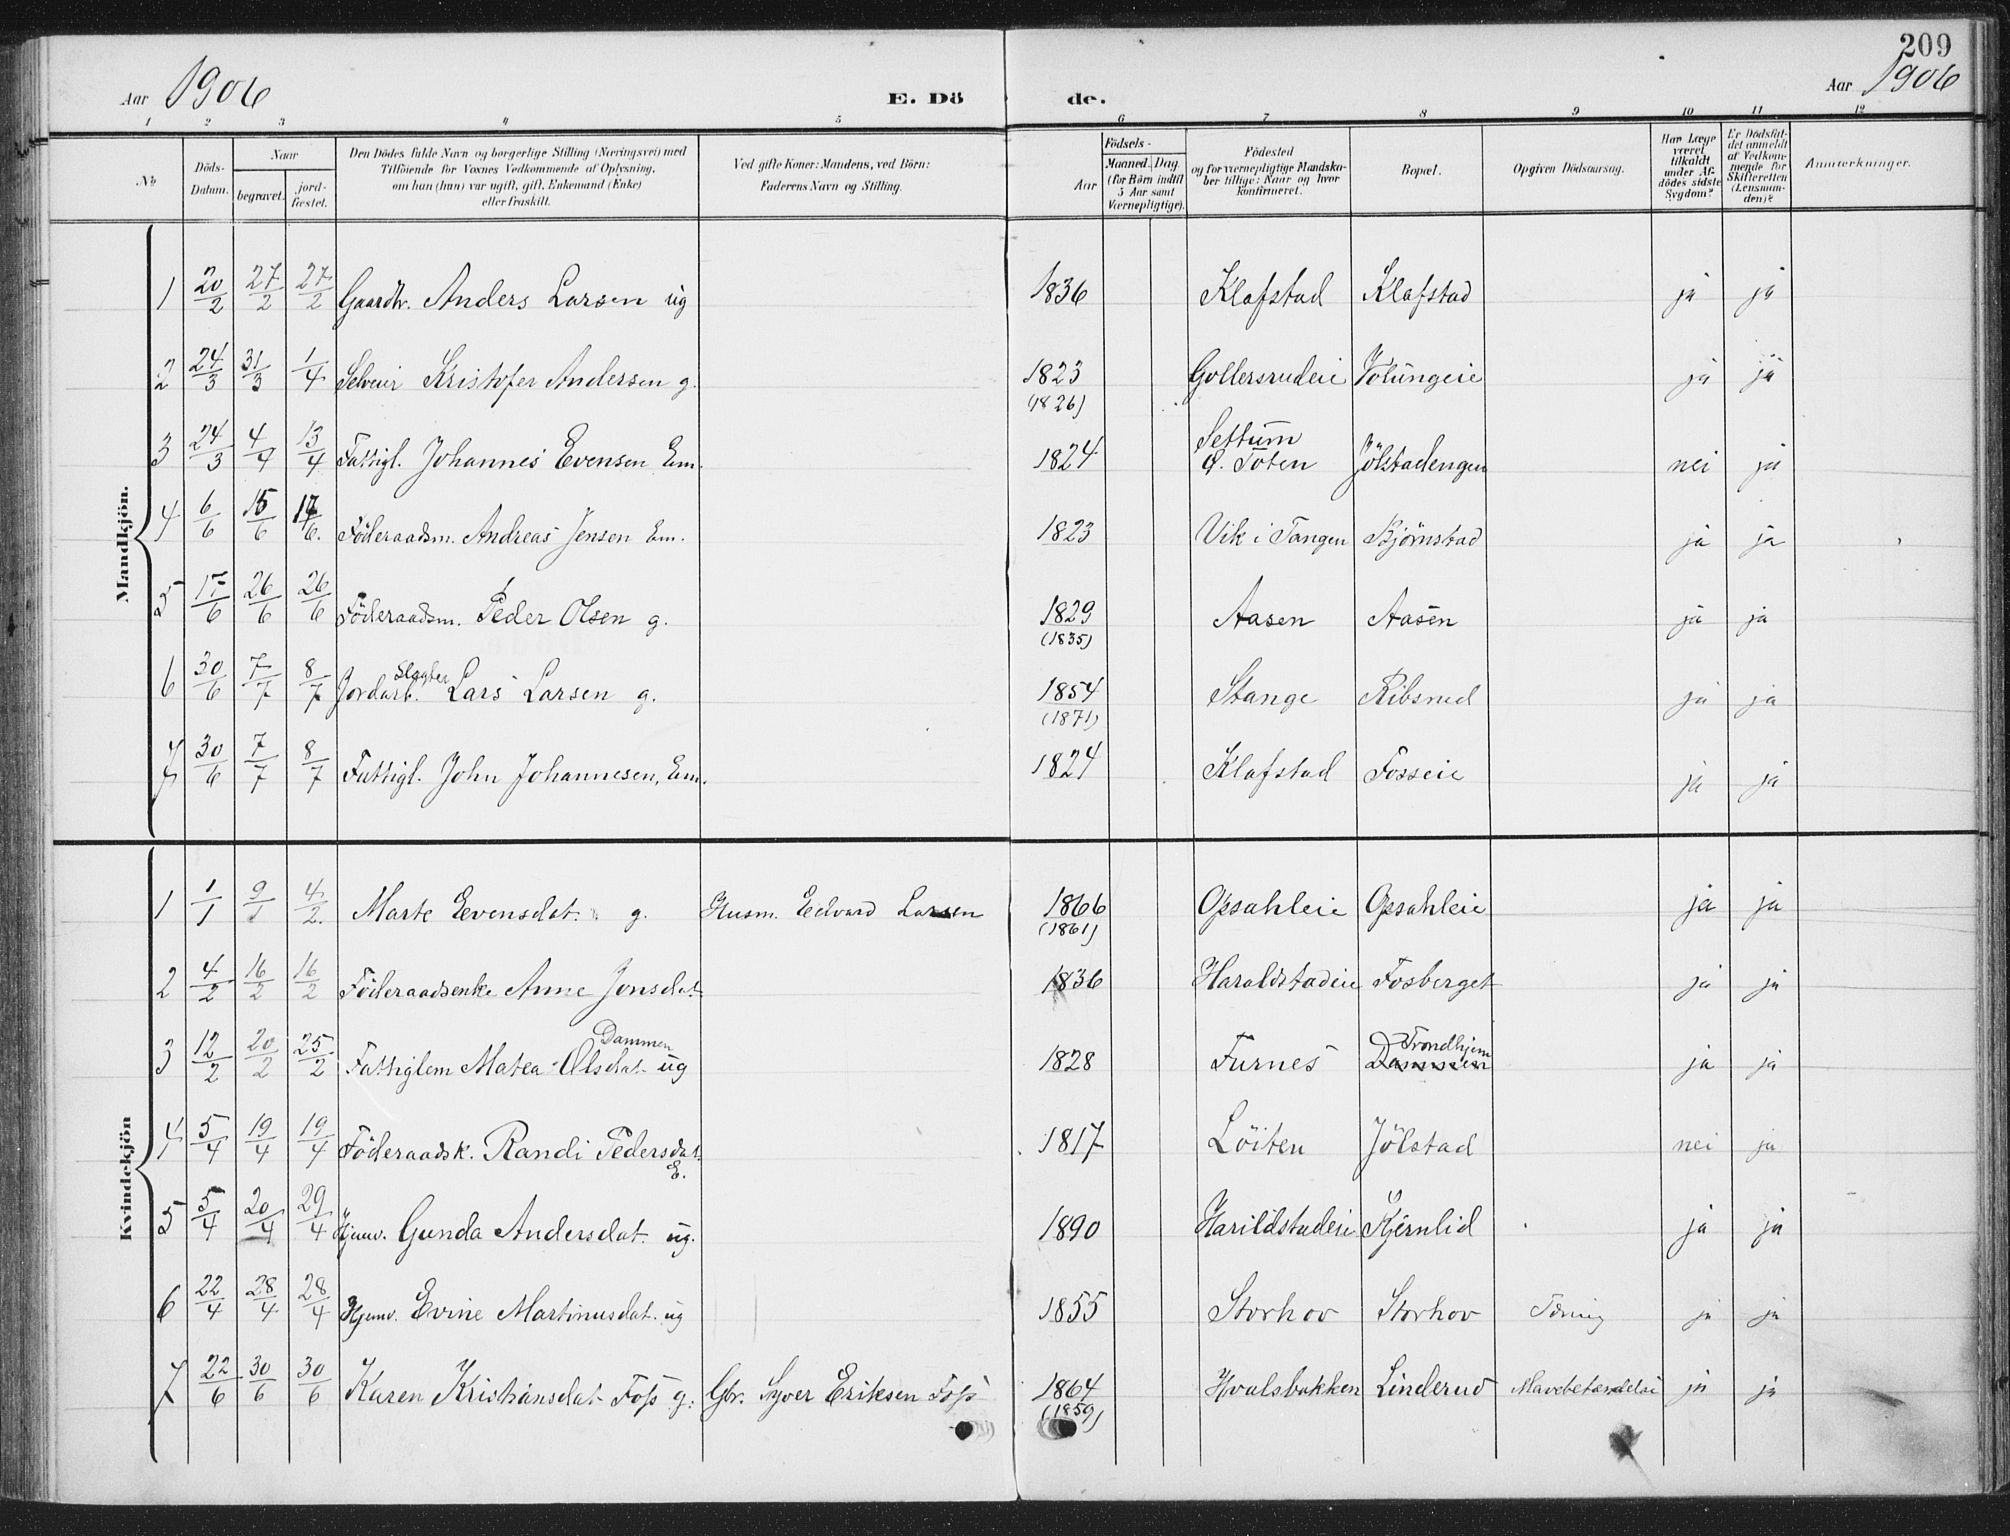 209
Aar 1906 E. Dö de. Aar 1906
1 2 3 4 5 6 7 8 9 10 11 12
No
Döds-Datum.
Naar
begravet.
jord-fæstet.
Den Dödes fulde Navn og borgerlige Stilling (Næringsvei) med
Tilföiende for Voxnes Vedkommende af Oplysning,
om han (hun) var ugift, gift, Enkemand (Enke)
eller fraskilt.
Ved gifte Koner: Mandens, ved Börn:
Faderens Navn og Stilling.
Födsels-
Aar
Maaned. Dag.
(for Börn indtil
5 Aar samt
Værnepligtige).
Födested
og for værnepligtige Mandska-
ber tillige: Naar og hvor
konfirmeret.
Bopæl.
Opgiven Dödsaarsag.
Har Læge
været
tilkaldt
under Af-
dödes sidste
Sygdom?
Er Dödsfal-
det anmeldt
af Vedkom-
mende for
Skifteretten
(Lensman-
den)?
Anmærkninger.
Mandkjön.
1 20/2 27/2 27/2 Gaardbr. Anders Larsen ug 1836 Klafstad Klafstad ja ja
2 24/3 31/3 1/4 Selveier Kristofer Andersen g. 1823 Gollersrudeie Volungeie ja ja
(1826)
3 24/3 4/4 13/4 Fattigl. Johannes Evensen Em. 1824 Settum Ö. Toten Jölstadengen nei ja
4 6/6 15/6 17/6. Föderaadsm. Andreas Jensen Em. 1823 Vik i Tangen Björnstad ja ja
5 17/6 26/6 26/6 Föderaadsm. Peder Olsen g. 1829 Aasen Aasen ja ja
(1835)
6 30/6 7/7 8/7 Jordarb. Slagter Lars Larsen g. 1854 Stange Ribsrud ja ja
(1871)
7 30/6 7/7 8/7 Fattigl. John Johannesen, Em. 1824 Klafstad Fosseie ja ja
Kvindekjön
1 1/1 9/1 4/2. Marte Evensdat. g. Husm. Edvard Larsen 1866 Opsahleie Opsahleie ja ja
(1861)
2 4/2 16/2 16/2 Föderaadsenke Anne Jonsdat 1836 Haraldstadeie Fosberget ja ja
3 12/2 20/2 25/2 Fattiglem Matea Olsdat Dammen ug 1828 Furnes Dammen Trondhjem ja ja
4 5/4 19/4 19/4 Föderaadsk. Randi Pedersdat. E. 1817 Löiten Jölstad nei ja
5 5/4 20/4 29/4 Hjemv. Gunda Andersdat. ug. 1890 Harildstadeie Kjernlid ja ja
6 22/4 28/4 28/4 Hjemv. Evine Martinusdat. ug 1855 Storhov Storhov Tæring ja ja
7 22/6 30/6 30/6 Karen Kristiansdat Foss g. Gbr. Syver Eriksen Foss 1864 Hvalsbakken Linderud Mavebetændelse ja ja
(1859)